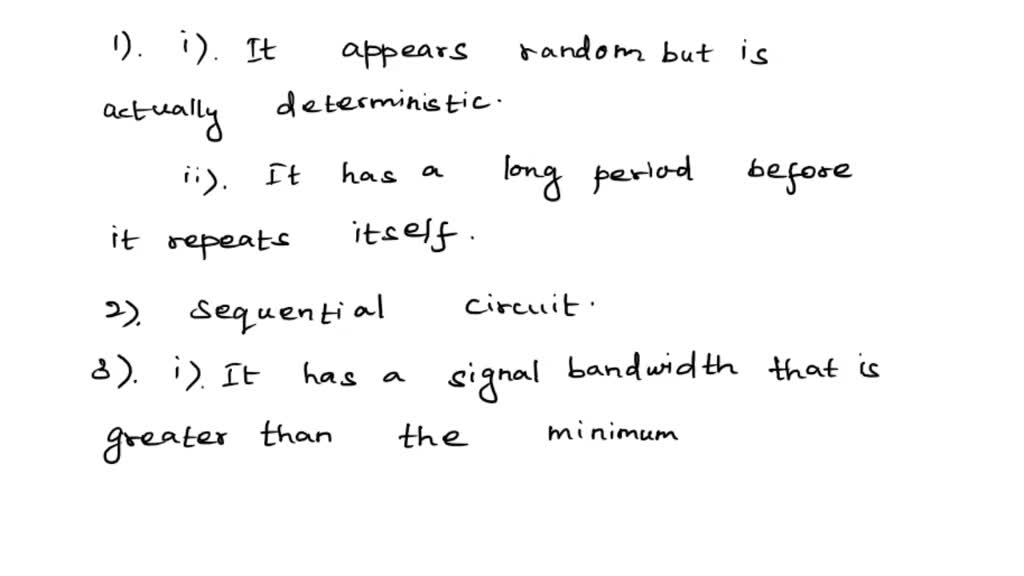 1). i). It appears random but is
actually deterministic.
ii). It has a long period before
it repeats itself.
2). sequential circuit.
3). i). It has a signal bandwidth that is
greater than the minimum